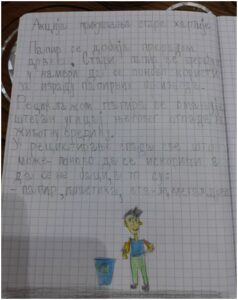 Акција прикупљања старе хартије
Папир се добија прерадом
дрвета, стари папир се
у намери да се поново користи
за израду папирних
Рециклажом папира се смањује
штетан утицај његовог отпада на
животну средину.
У рециклирање спада све што
може поново да се искористи а
да се не баци, а то су:
- папир, пластика, стакло, метал